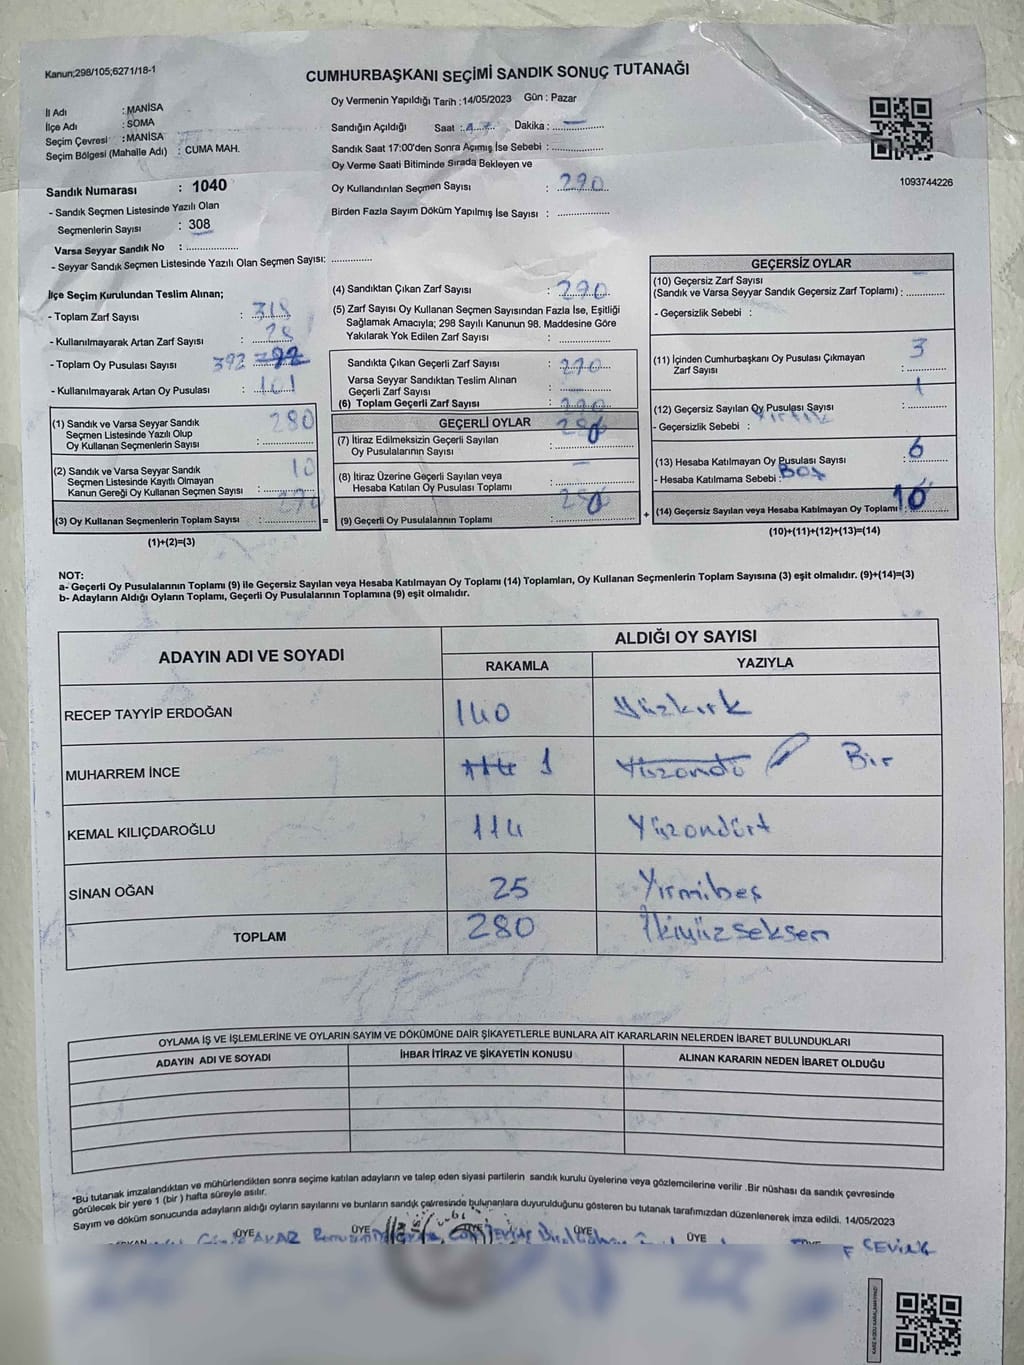 Kanun;298/105;6271/18-1
CUMHURBAŞKANI SEÇİMİ SANDIK SONUÇ TUTANAĞI
İl Adı : MANİSA
İlçe Adı : SOMA
Seçim Çevresi : MANİSA
Seçim Bölgesi (Mahalle Adı) : CUMA MAH.
Sandık Numarası : 1040
- Sandık Seçmen Listesinde Yazılı Olan
Seçmenlerin Sayısı : 308
Varsa Seyyar Sandık No : ..................
- Seyyar Sandık Seçmen Listesinde Yazılı Olan Seçmen Sayısı: ..............
Oy Vermenin Yapıldığı Tarih : 14/05/2023 Gün : Pazar
Sandığın Açıldığı Saat : 17 Dakika : —
Sandık Saat 17:00'den Sonra Açımış İse Sebebi : ..................
Oy Verme Saati Bitiminde Sırada Bekleyen ve
Oy Kullandırılan Seçmen Sayısı : 290
Birden Fazla Sayım Döküm Yapılmış İse Sayısı : ..................
1093744226
İlçe Seçim Kurulundan Teslim Alınan;
- Toplam Zarf Sayısı : 318
- Kullanılmayarak Artan Zarf Sayısı : 28
- Toplam Oy Pusulası Sayısı 392
- Kullanılmayarak Artan Oy Pusulası : 101
(1) Sandık ve Varsa Seyyar Sandık
Seçmen Listesinde Yazılı Olup
Oy Kullanan Seçmenlerin Sayısı : 280
(2) Sandık ve Varsa Seyyar Sandık
Seçmen Listesinde Kayıtlı Olmayan
Kanun Gereği Oy Kullanan Seçmen Sayısı : 10
(3) Oy Kullanan Seçmenlerin Toplam Sayısı : 290
(1)+(2)=(3)
(4) Sandıktan Çıkan Zarf Sayısı : 290
(5) Zarf Sayısı Oy Kullanan Seçmen Sayısından Fazla İse, Eşitliği
Sağlamak Amacıyla; 298 Sayılı Kanunun 98. Maddesine Göre
Yakılarak Yok Edilen Zarf Sayısı : ..................
Sandıkta Çıkan Geçerli Zarf Sayısı : 290
Varsa Seyyar Sandıktan Teslim Alınan
Geçerli Zarf Sayısı : ..................
(6) Toplam Geçerli Zarf Sayısı : 290
GEÇERLİ OYLAR
(7) İtiraz Edilmeksizin Geçerli Sayılan
Oy Pusulalarının Sayısı : 280
(8) İtiraz Üzerine Geçerli Sayılan veya
Hesaba Katılan Oy Pusulası Toplamı : —
= (9) Geçerli Oy Pusulalarının Toplamı : 280
GEÇERSİZ OYLAR
(10) Geçersiz Zarf Sayısı
(Sandık ve Varsa Seyyar Sandık Geçersiz Zarf Toplamı) : —
- Geçersizlik Sebebi :
(11) İçinden Cumhurbaşkanı Oy Pusulası Çıkmayan
Zarf Sayısı : 3
(12) Geçersiz Sayılan Oy Pusulası Sayısı : 1
- Geçersizlik Sebebi : Yırtık
(13) Hesaba Katılmayan Oy Pusulası Sayısı : 6
- Hesaba Katılmama Sebebi : Boş
+ (14) Geçersiz Sayılan veya Hesaba Katılmayan Oy Toplamı : 10
(10)+(11)+(12)+(13)=(14)
NOT:
a- Geçerli Oy Pusulalarının Toplamı (9) ile Geçersiz Sayılan veya Hesaba Katılmayan Oy Toplamı (14) Toplamları, Oy Kullanan Seçmenlerin Toplam Sayısına (3) eşit olmalıdır. (9)+(14)=(3)
b- Adayların Aldığı Oyların Toplamı, Geçerli Oy Pusulalarının Toplamına (9) eşit olmalıdır.
ADAYIN ADI VE SOYADI ALDIĞI OY SAYISI
RAKAMLA YAZIYLA
RECEP TAYYİP ERDOĞAN 140 Yüzkırk
MUHARREM İNCE 1 Bir
KEMAL KILIÇDAROĞLU 114 Yüzondört
SİNAN OĞAN 25 Yirmibeş
TOPLAM 280 İkiyüzseksen
OYLAMA İŞ VE İŞLEMLERİNE VE OYLARIN SAYIM VE DÖKÜMÜNE DAİR ŞİKAYETLERLE BUNLARA AİT KARARLARIN NELERDEN İBARET BULUNDUKLARI
ADAYIN ADI VE SOYADI İHBAR İTİRAZ VE ŞİKAYETİN KONUSU ALINAN KARARIN NEDEN İBARET OLDUĞU
*Bu tutanak imzalandıktan ve mühürlendikten sonra seçime katılan adayların ve talep eden siyasi partilerin sandık kurulu üyelerine veya gözlemcilerine verilir .Bir nüshası da sandık çevresinde
görülecek bir yere 1 (bir ) hafta süreyle asılır.
Sayım ve döküm sonucunda adayların aldığı oyların sayılarını ve bunların sandık çevresinde bulunanlara duyurulduğunu gösteren bu tutanak tarafımızdan düzenlenerek imza edildi. 14/05/2023
ÜYE ÜYE ÜYE ÜYE